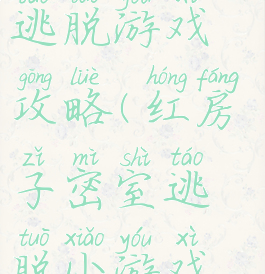 táo tuō yóu xì
逃脱游戏
gōng lüè hóng fáng
攻略(红房
zǐ mì shì táo
子密室逃
tuō xiǎo yóu xì
脱小游戏